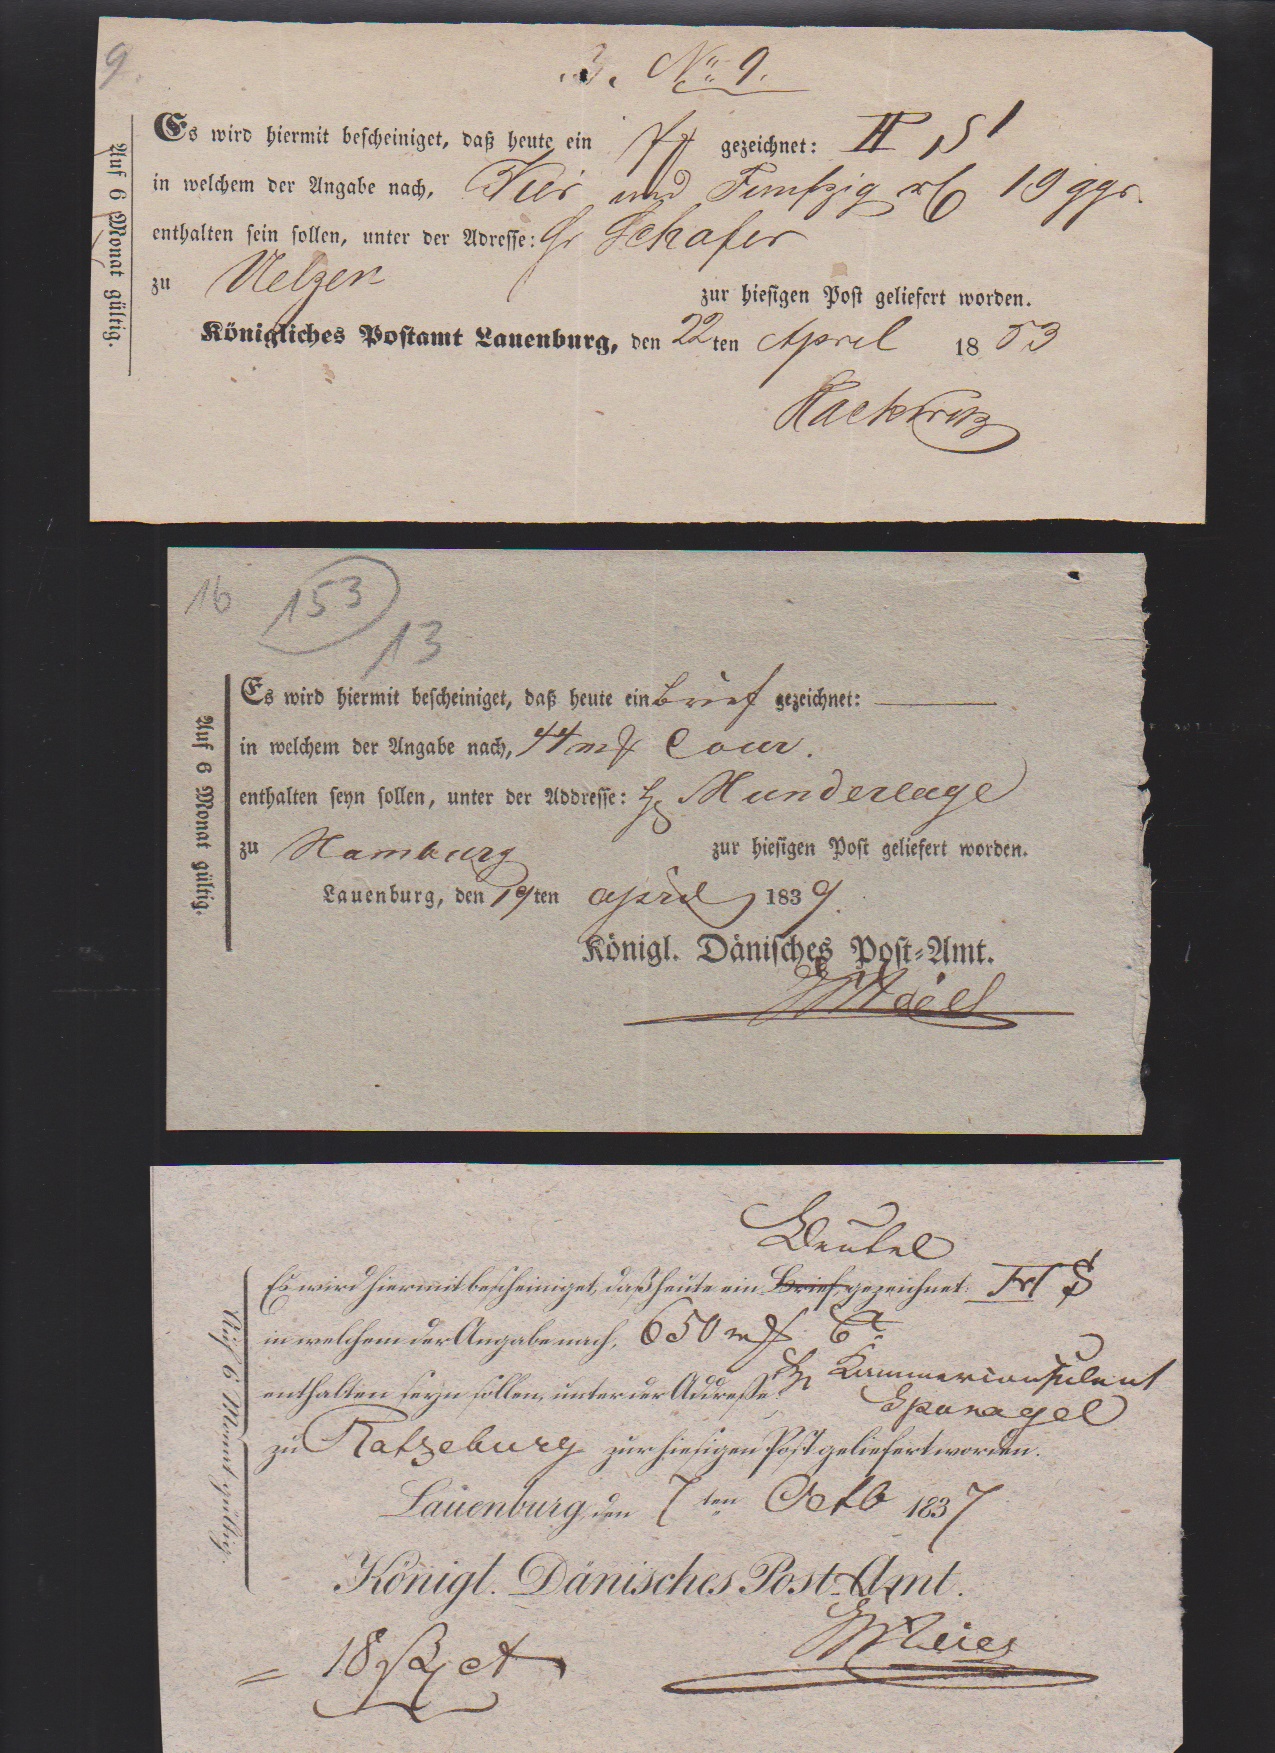 9.
3. No 9.
Es wird hiermit bescheiniget, daß heute ein gezeichnet:
in welchem der Angabe nach, Vier und Funfzig 19 ggr.
enthalten sein sollen, unter der Adresse: Schafer
zu Uelzen zur hiesigen Post geliefert worden.
Königliches Postamt Lauenburg, den 22ten April 1853
Auf 6 Monat gültig.
16 153
13
Es wird hiermit bescheiniget, daß heute ein Brief gezeichnet:
in welchem der Angabe nach, 44 Cour.
enthalten seyn sollen, unter der Addresse: Munderlage
zu Hamburg zur hiesigen Post geliefert worden.
Lauenburg, den 19ten april 1839.
Königl. Dänisches Post-Amt.
Auf 6 Monat gültig.
Beutel
Es wird hiermit bescheiniget, daß heute ein Brief gezeichnet:
in welchem der Angabe nach, 650
enthalten seyn sollen, unter der Addresse: Kammerconsulent
Sponagel
zu Ratzeburg zur hiesigen Post geliefert worden.
Lauenburg, den 7ten Octb 1837
Königl. Dänisches Post-Amt.
18
Auf 6 Monat gültig.